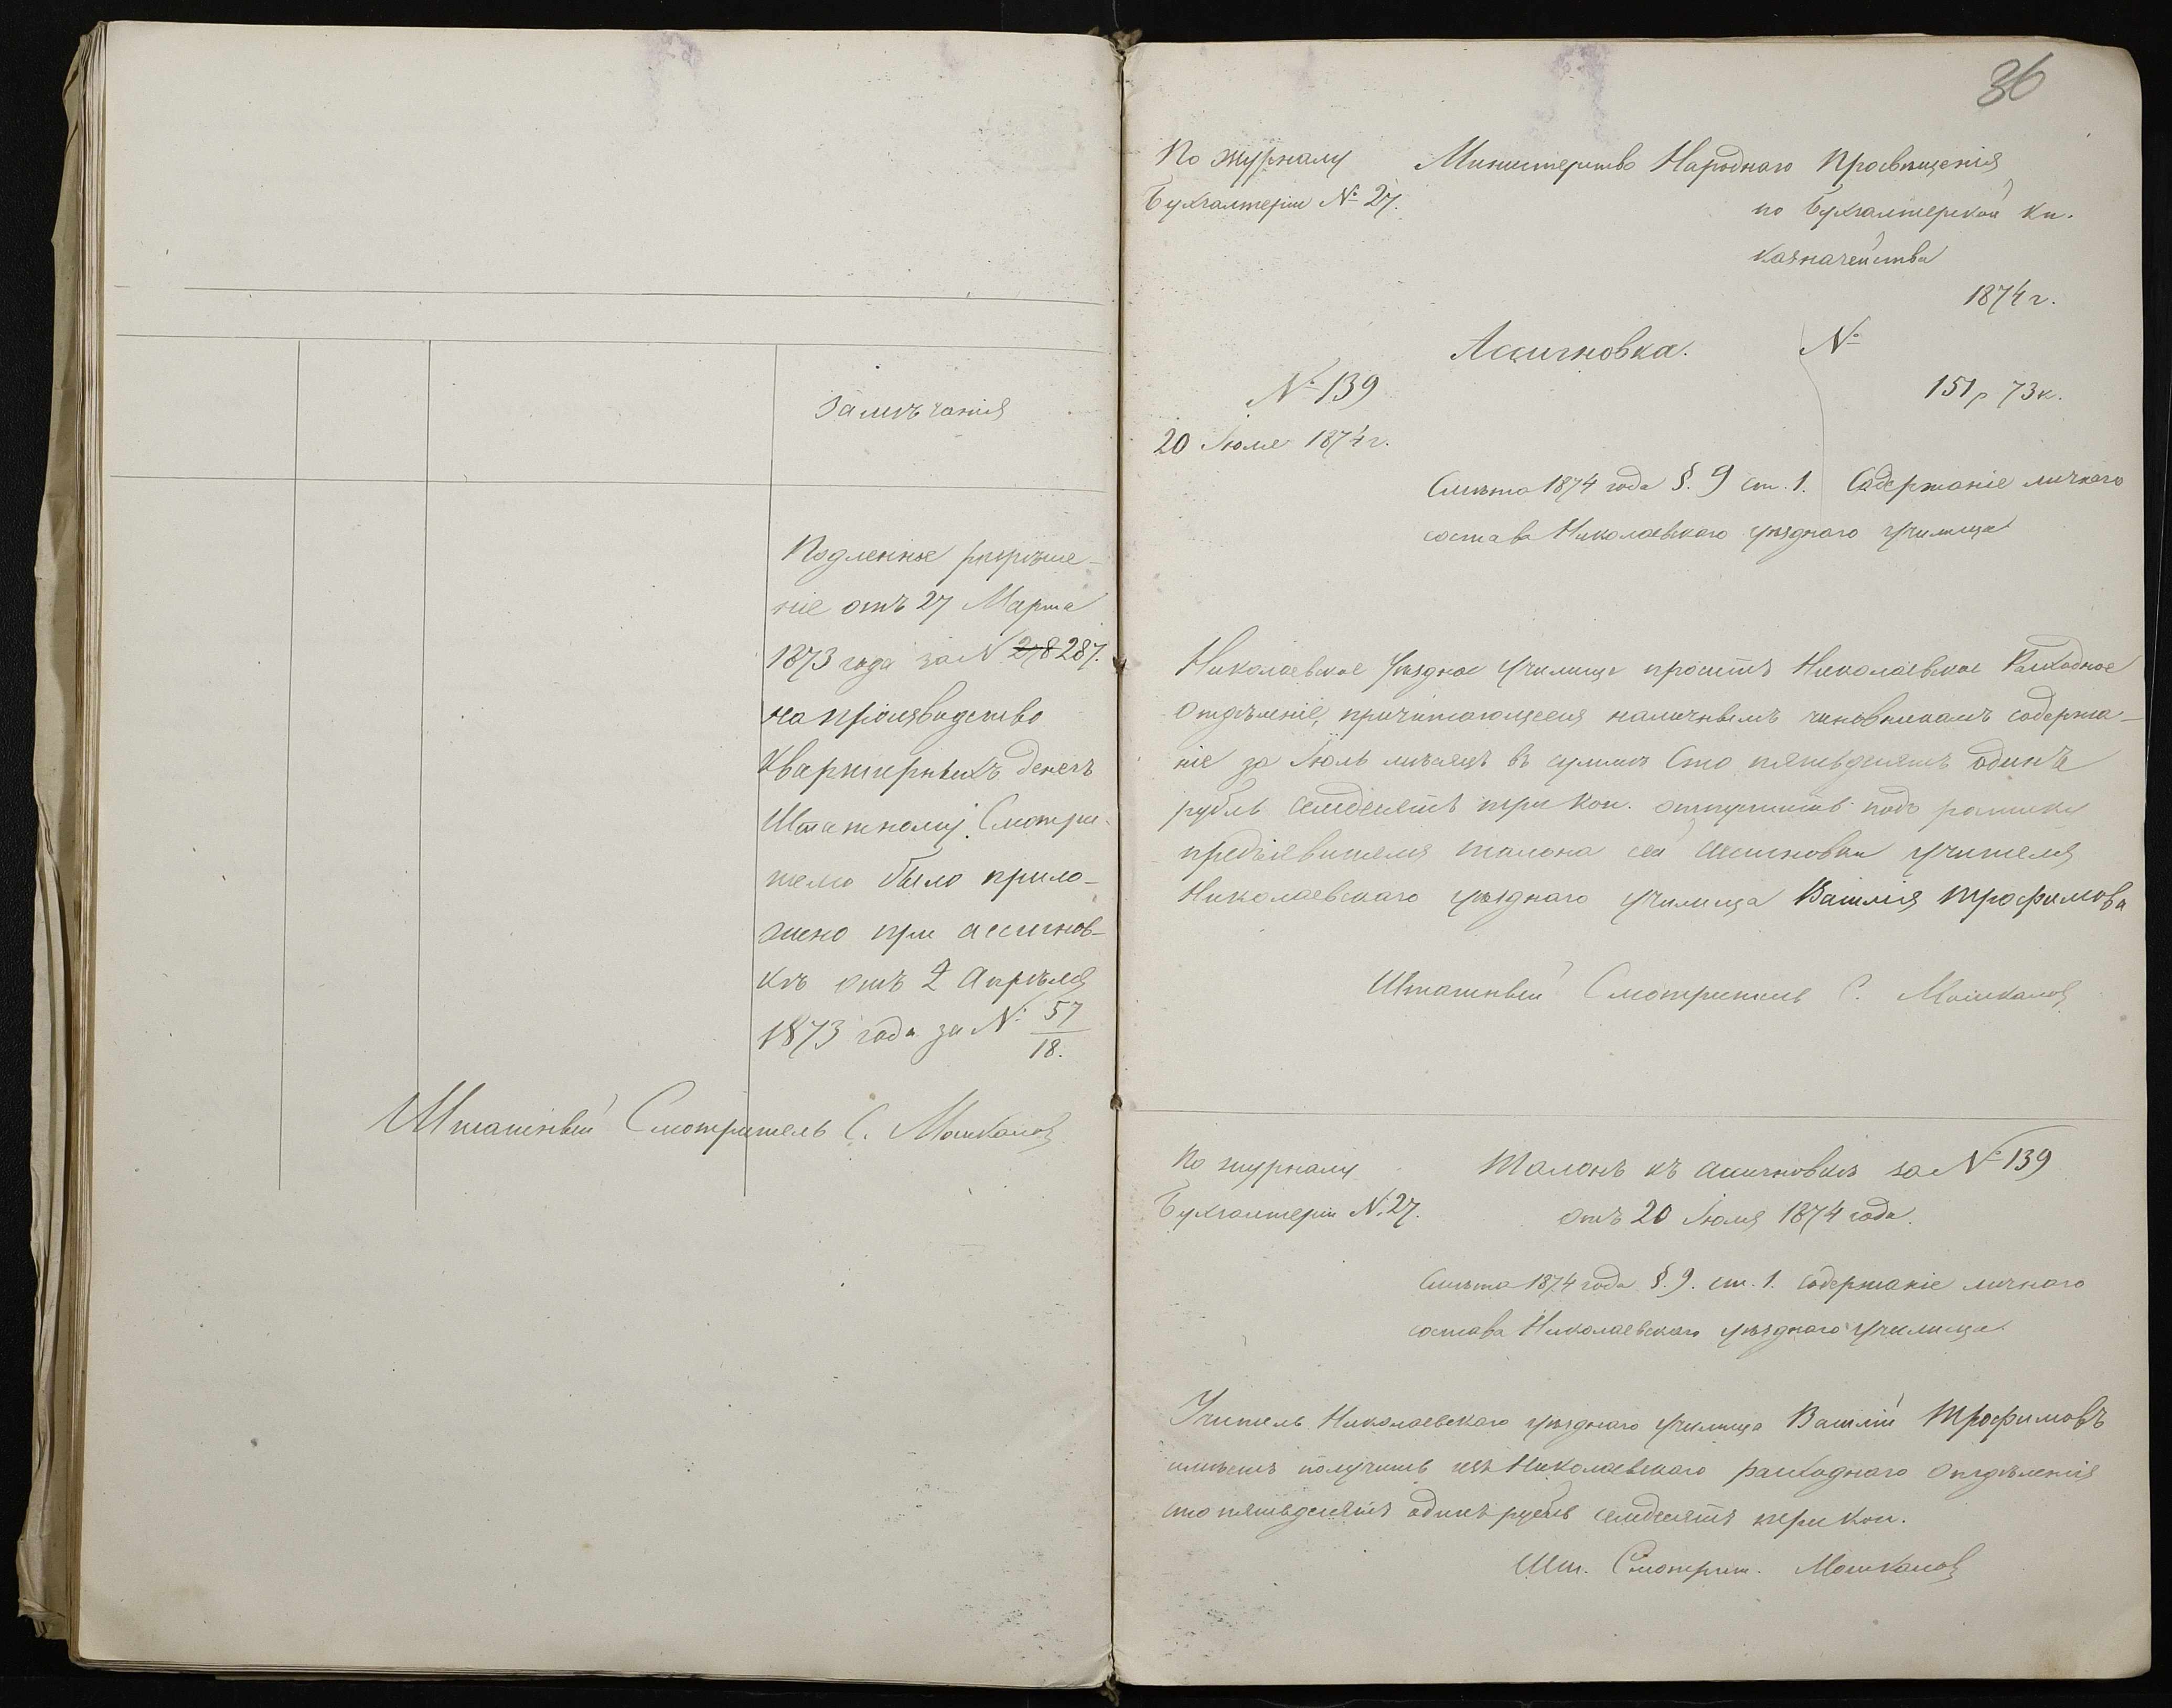 Замѣчанія
Подленное разрѣше-
ніе отъ 27 Марта
1873 года за № 278 287.
на производство
квартирныхъ денегъ
Штатному Смотри-
телю было прило-
жено при ассигнов-
кѣ отъ 2 Апрѣля
1873 года за № 57/18.
Штатный Смотритель С.
36
По журналу
Бухгалтеріи № 27.
Министерство Народнаго Просвѣщенія
по Бухгалтерской кн.
казначейства
1874 г.
Ассигновка.
№
№ 139
151 р 73 к.
20 Іюля 1874 г.
Смѣта 1874 года §. 9 ст. 1. Содержаніе личнаго
состава Николаевскаго уѣзднаго училища
Николаевское Уѣздное Училище проситъ Николаевское Расходное
Отдѣленіе, причитающееся наличнымъ чиновникамъ содержа-
ніе за Іюль мѣсяцъ въ суммѣ Сто пятьдесятъ одинъ
рубль семдесятъ три коп. отпустить подъ росписку
предъявителя талона сей ассигновки учителя
Николаевскаго уѣзднаго училища Василія Трофимова
Штатный Смотритель С.
По журналу
Бухгалтеріи №. 27.
Талонъ къ ассигновкѣ за № 139
отъ 20 Іюля 1874 года.
Смѣта 1874 года §. 9. ст. 1. Содержаніе личнаго
состава Николаевскаго уѣзднаго училища
Учитель Николаевскаго уѣзднаго училища Василій Трофимовъ
имѣетъ получить изъ Николаевскаго расходнаго Отдѣленія
сто пятьдесятъ одинъ рубль семдесятъ три коп.
Шт. Смотрит.